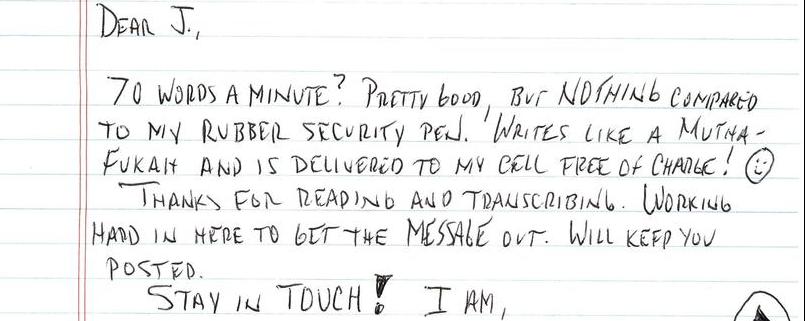 DEAR J.,
70 WORDS A MINUTE? PRETTY GOOD, BUT NOTHING COMPARED
TO MY RUBBER SECURITY PEN. WRITES LIKE A MUTHA-
FUKAH AND IS DELIVERED TO MY CELL FREE OF CHARGE! ☺
THANKS FOR READING AND TRANSCRIBING. WORKING
HARD IN HERE TO GET THE MESSAGE OUT. WILL KEEP YOU
POSTED.
STAY IN TOUCH! I AM,